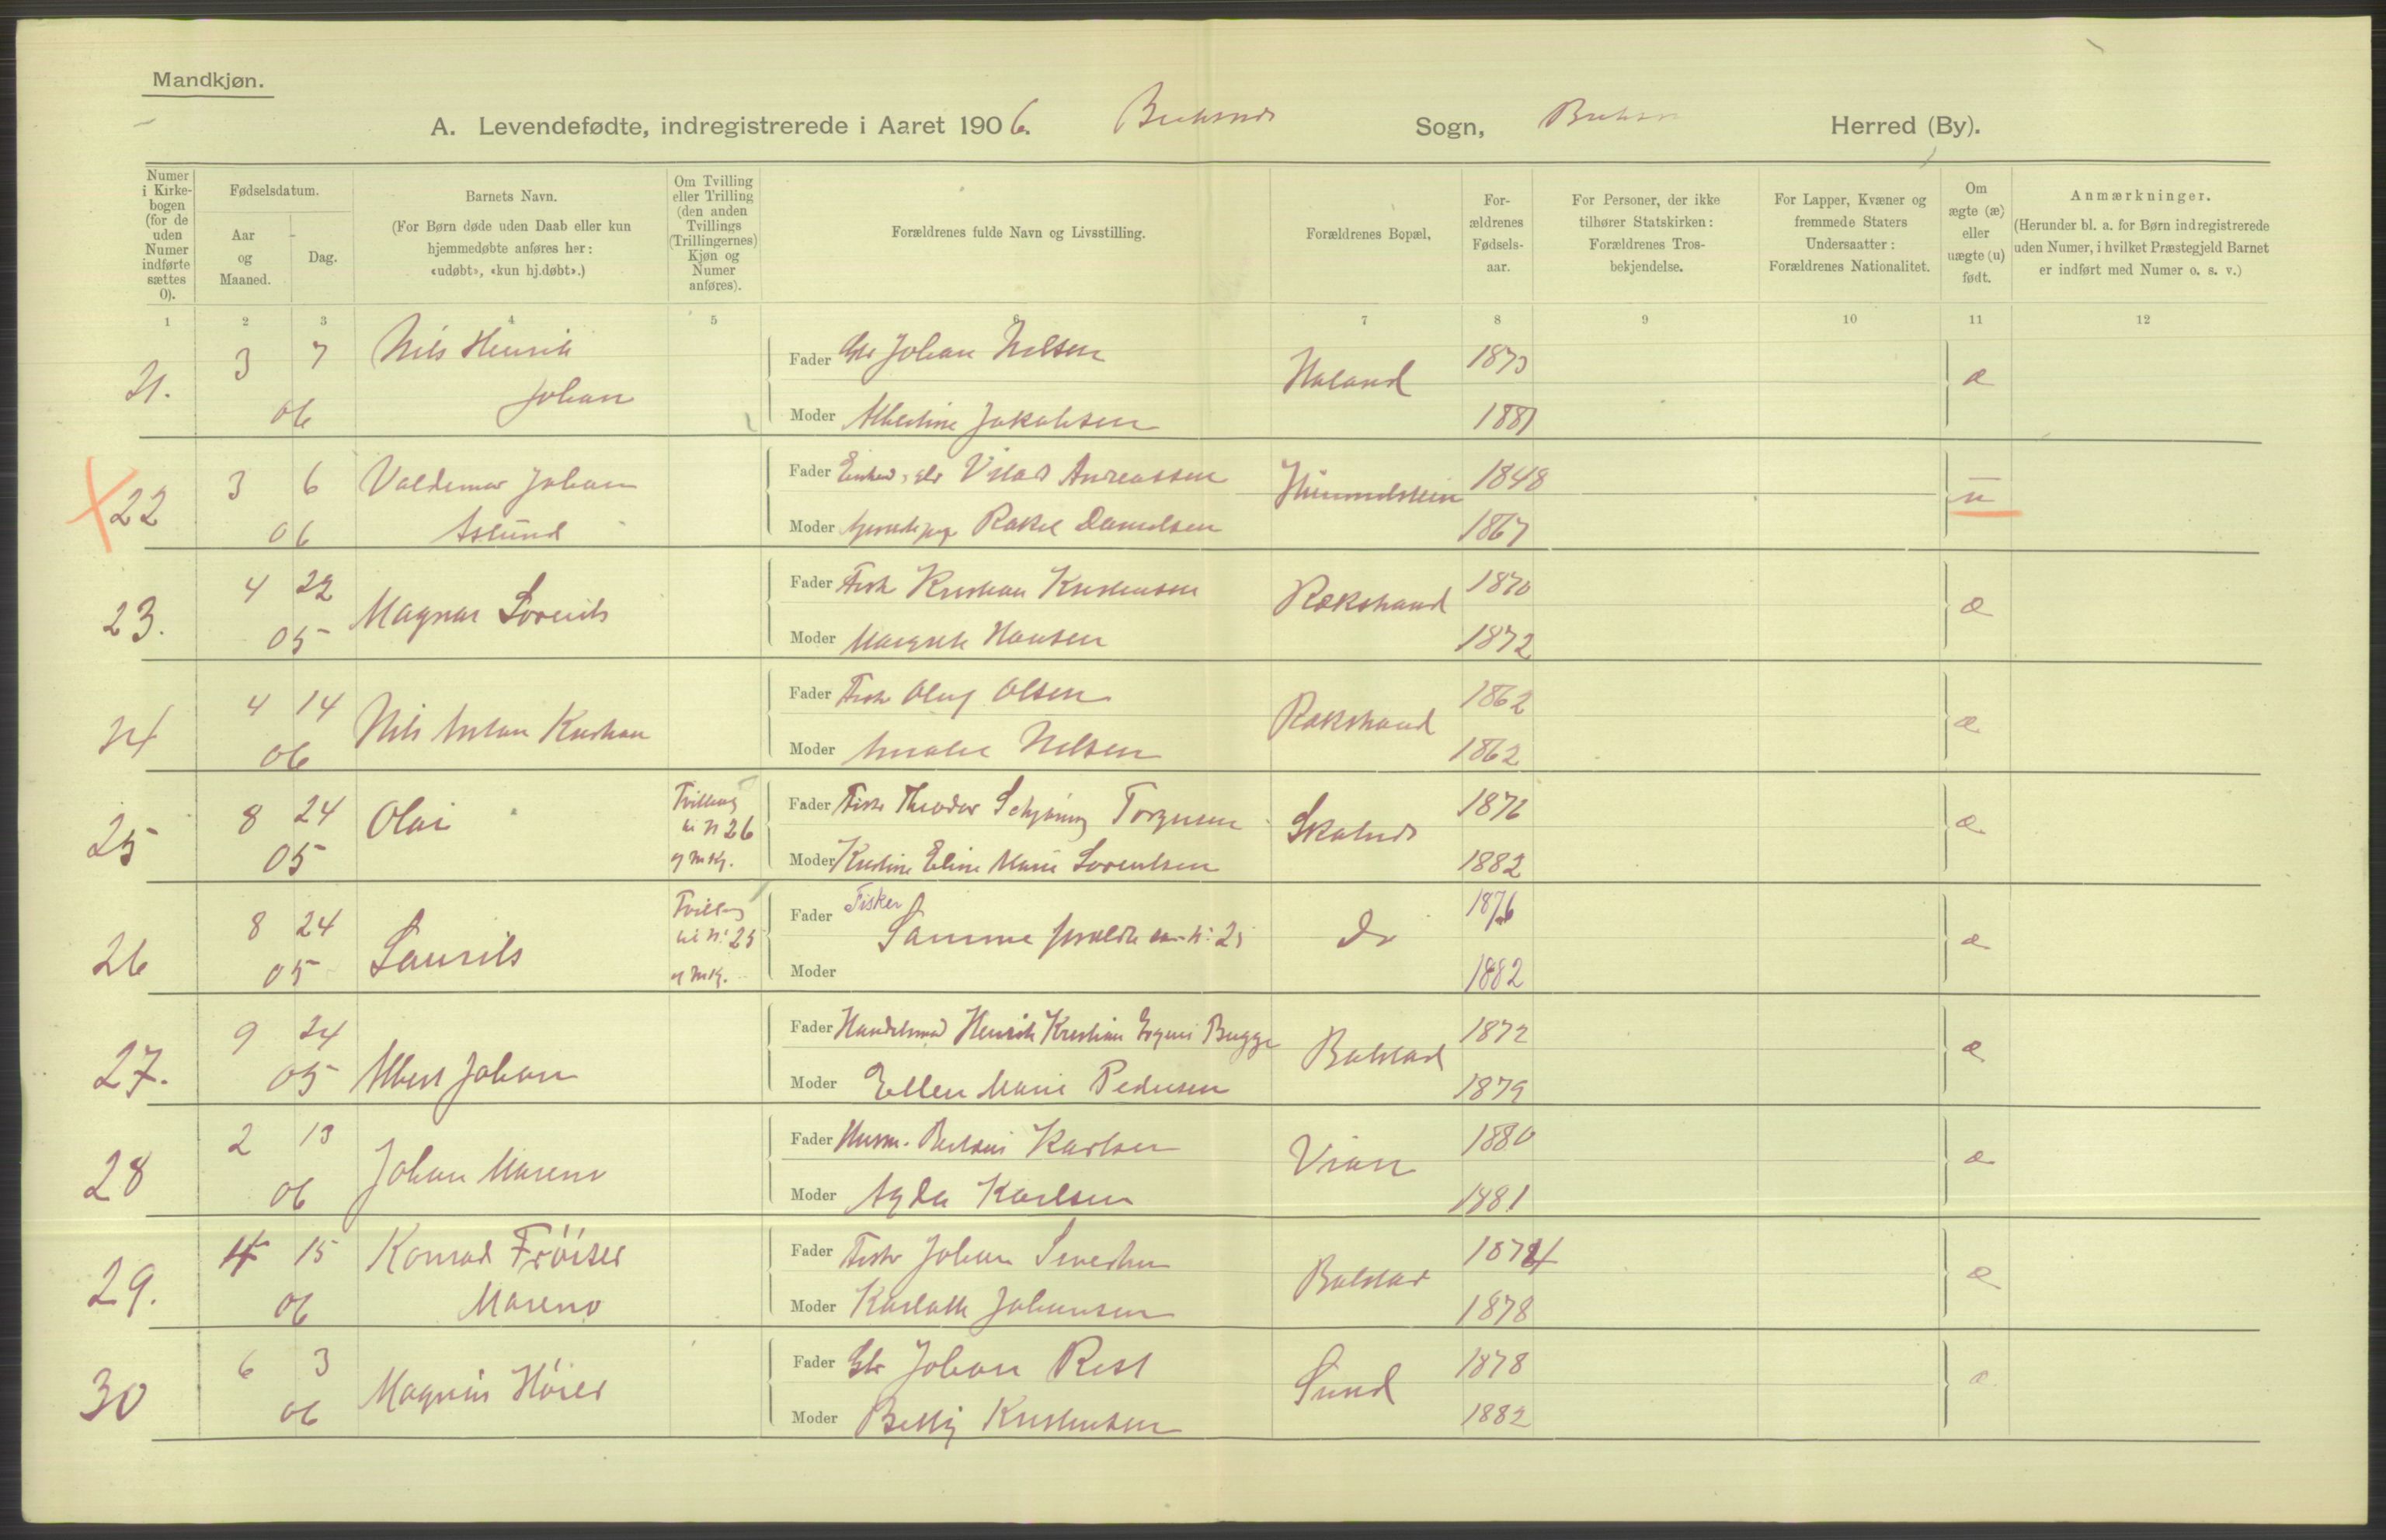 Mandkjøn.
A. Levendefødte, indregistrerede i Aaret 1906. Buksnes Sogn, Herred (By).
Numer i Kirkebogen (for de uden Numer indførte sættes 0).
Fødselsdatum.
Aar og Maaned.
Dag.
Barnets Navn.
(For Børn døde uden Daab eller kun hjemmedøbte anføres her: «udøbt», «kun hj.døbt».)
Om Tvilling eller Trilling (den anden Tvillings (Trillingernes) Kjøn og Numer anføres).
Forældrenes fulde Navn og Livsstilling.
Forældrenes Bopæl,
Forældrenes Fødselsaar.
For Personer, der ikke tilhører Statskirken: Forældrenes Trosbekjendelse.
For Lapper, Kvæner og fremmede Staters Undersaatter: Forældrenes Nationalitet.
Om ægte (æ) eller uægte (u) født.
Anmærkninger.
(Herunder bl. a. for Børn indregistrerede uden Numer, i hvilket Præstegjeld Barnet er indført med Numer o. s. v.)
1 2 3 4 5 6 7 8 9 10 11 12
21. 3 7 06 Nils Henrik Johan
Fader Johan Nilsen 1873
Moder Albertine Jakobsen 1881
Haland æ
22 3 6 06 Valdemar Johan Aslund
Fader Andreassen 1848
Moder Rakel Danielsen 1867
Himmelstein u
23. 4 22 05 Magnar Lorents
Fader Fisk Kristian Kristensen 1870
Moder Margrete Hansen 1872
Rækstrand æ
24 4 14 06 Nils Anton Kristian
Fader Fisk Oluf Olsen 1862
Moder Amalie Nilsen 1862
Rækstrand æ
25 8 24 05 Olai
Tvilling til N 26 af Mkj.
Fader Fisk Theodor Schjöning Torgersen 1876
Moder Kristine Eline Marie Lorentsen 1882
Skotnes æ
26 8 24 05 Laurits
Tvilling til N: 25 af Mkj.
Fader Fisker Samme forældre som N: 25 1876
Moder 1882
Do æ
27. 9 24 05 Albert Johan
Fader Handelsmd Henrik Kristian Bugge 1872
Moder Ellen Marie Pedersen 1879
Balstad æ
28 2 13 06 Johan Mareno
Fader Husm. Karlsen 1880
Moder Agda Karlsen 1881
Vian æ
29. 4 15 06 Konrad Fröiser Mareno
Fader Fisk Johan Severin 1874
Moder Karlotte Johansen 1878
Balstad æ
30 6 3 06 Magnus Höier
Fader Johan Rist 1878
Moder Betty Kristensen 1882
Sund æ